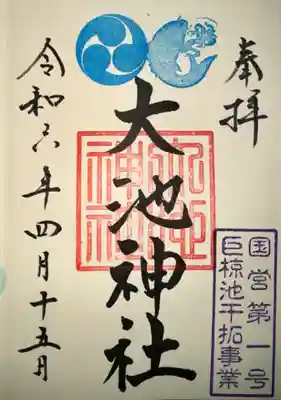 奉拝
大池神社
大池神社
国営第一号
巨椋池干拓事業
令和六年四月十五日